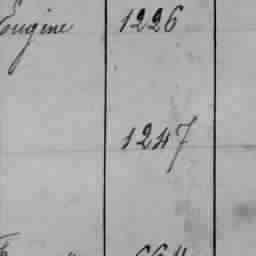 Eugène 1226
1247